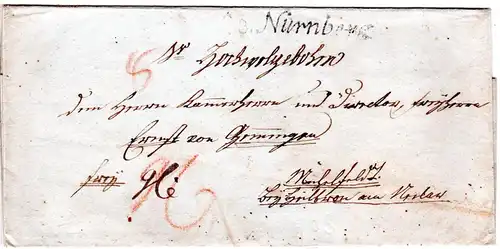 Nürnberg
Sr Hochwolgebohrn
dem Herrn Kammerherrn und Director, freyherrn
Ernst von Gemmingen
frey
Michelfeld
bey Heilbron am Neckar